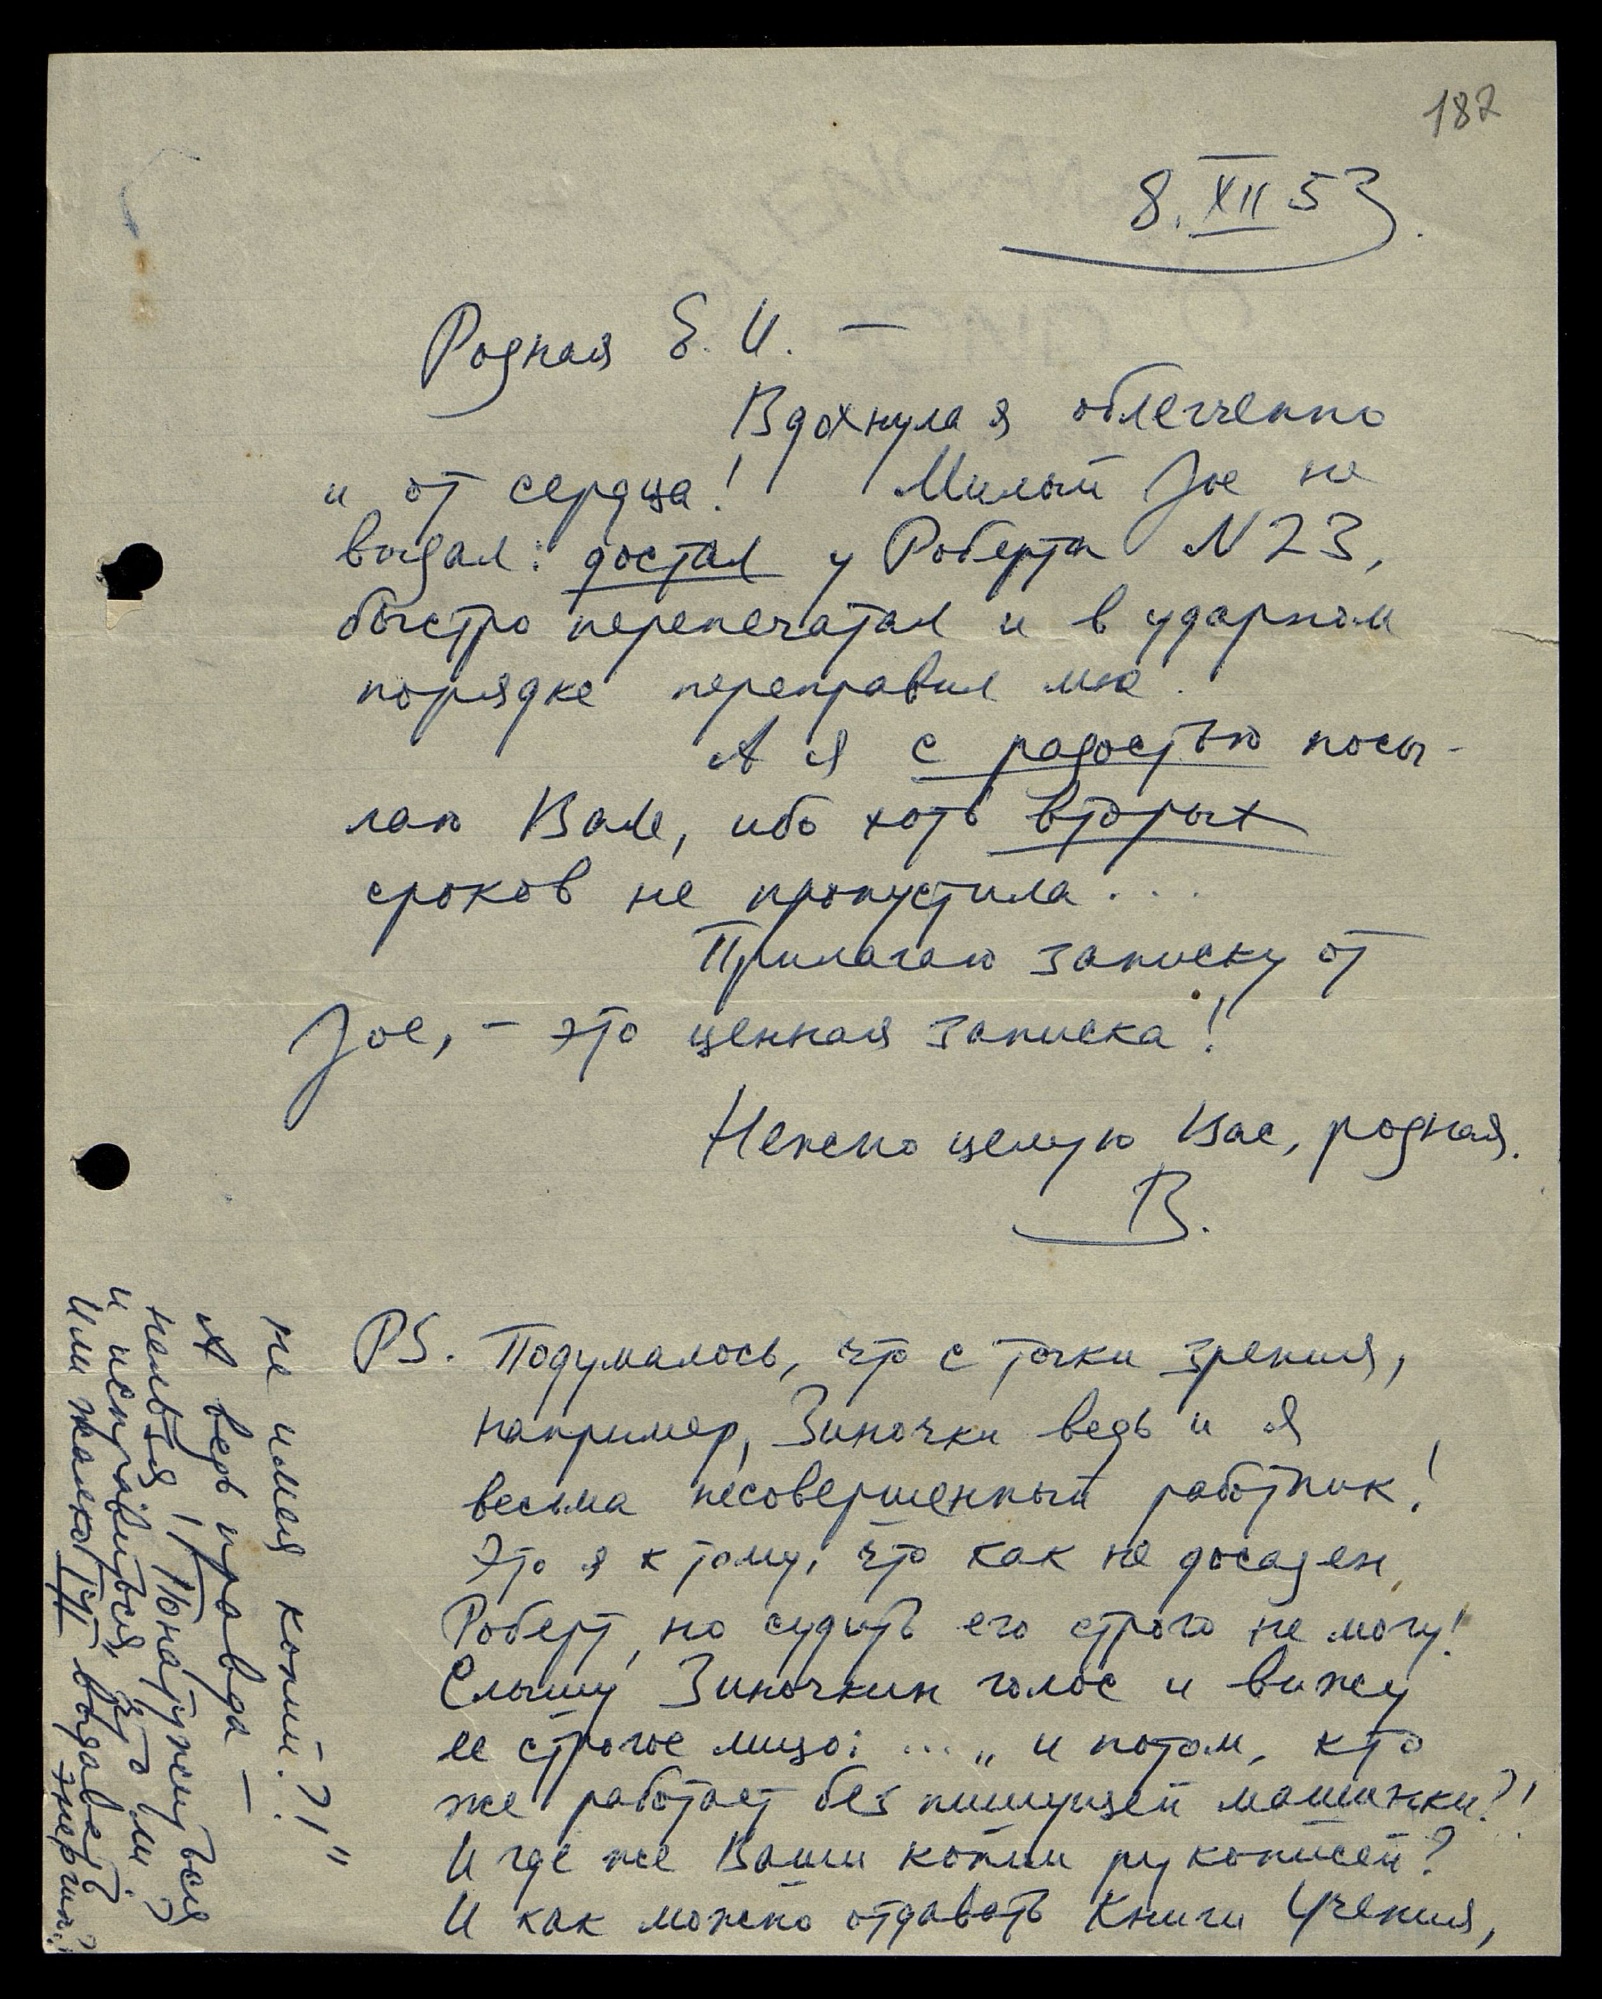 182
8.XII 53.
Родная Е. И. —
Вдохнула я облегченно
и от сердца! Милый Joe не
выдал: достал у Роберта N 23,
быстро перепечатал и в ударном
порядке переправил мне.
А я с радостью посы-
лаю Вам, ибо хоть вторых
сроков не пропустила...
Прилагаю записку от
Joe, – это ценная записка!
Нежно целую Вас, родная.
В.
PS. Подумалось, что с точки зрения,
например, Зиночки ведь и я
весьма несовершенный работник!
Это я к тому, что как не досаден
Роберт, но судить его строго не могу!
Слышу Зиночкин голос и вижу
ее строгое лицо: ... „и потом, кто
же работает без пишущей машинки?!
И где же Ваши копии рукописей?
И как можно отдавать Книги Учения,
не имея копий?!"
А ведь правда —
нельзя! Понатужиться
и исправиться, что ли?
Или жалко тут выдавать
энергии?!